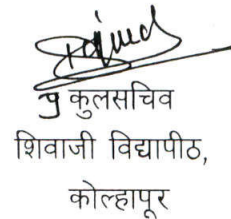 कुलसचिव
शिवाजी विद्यापीठ,
कोल्हापूर